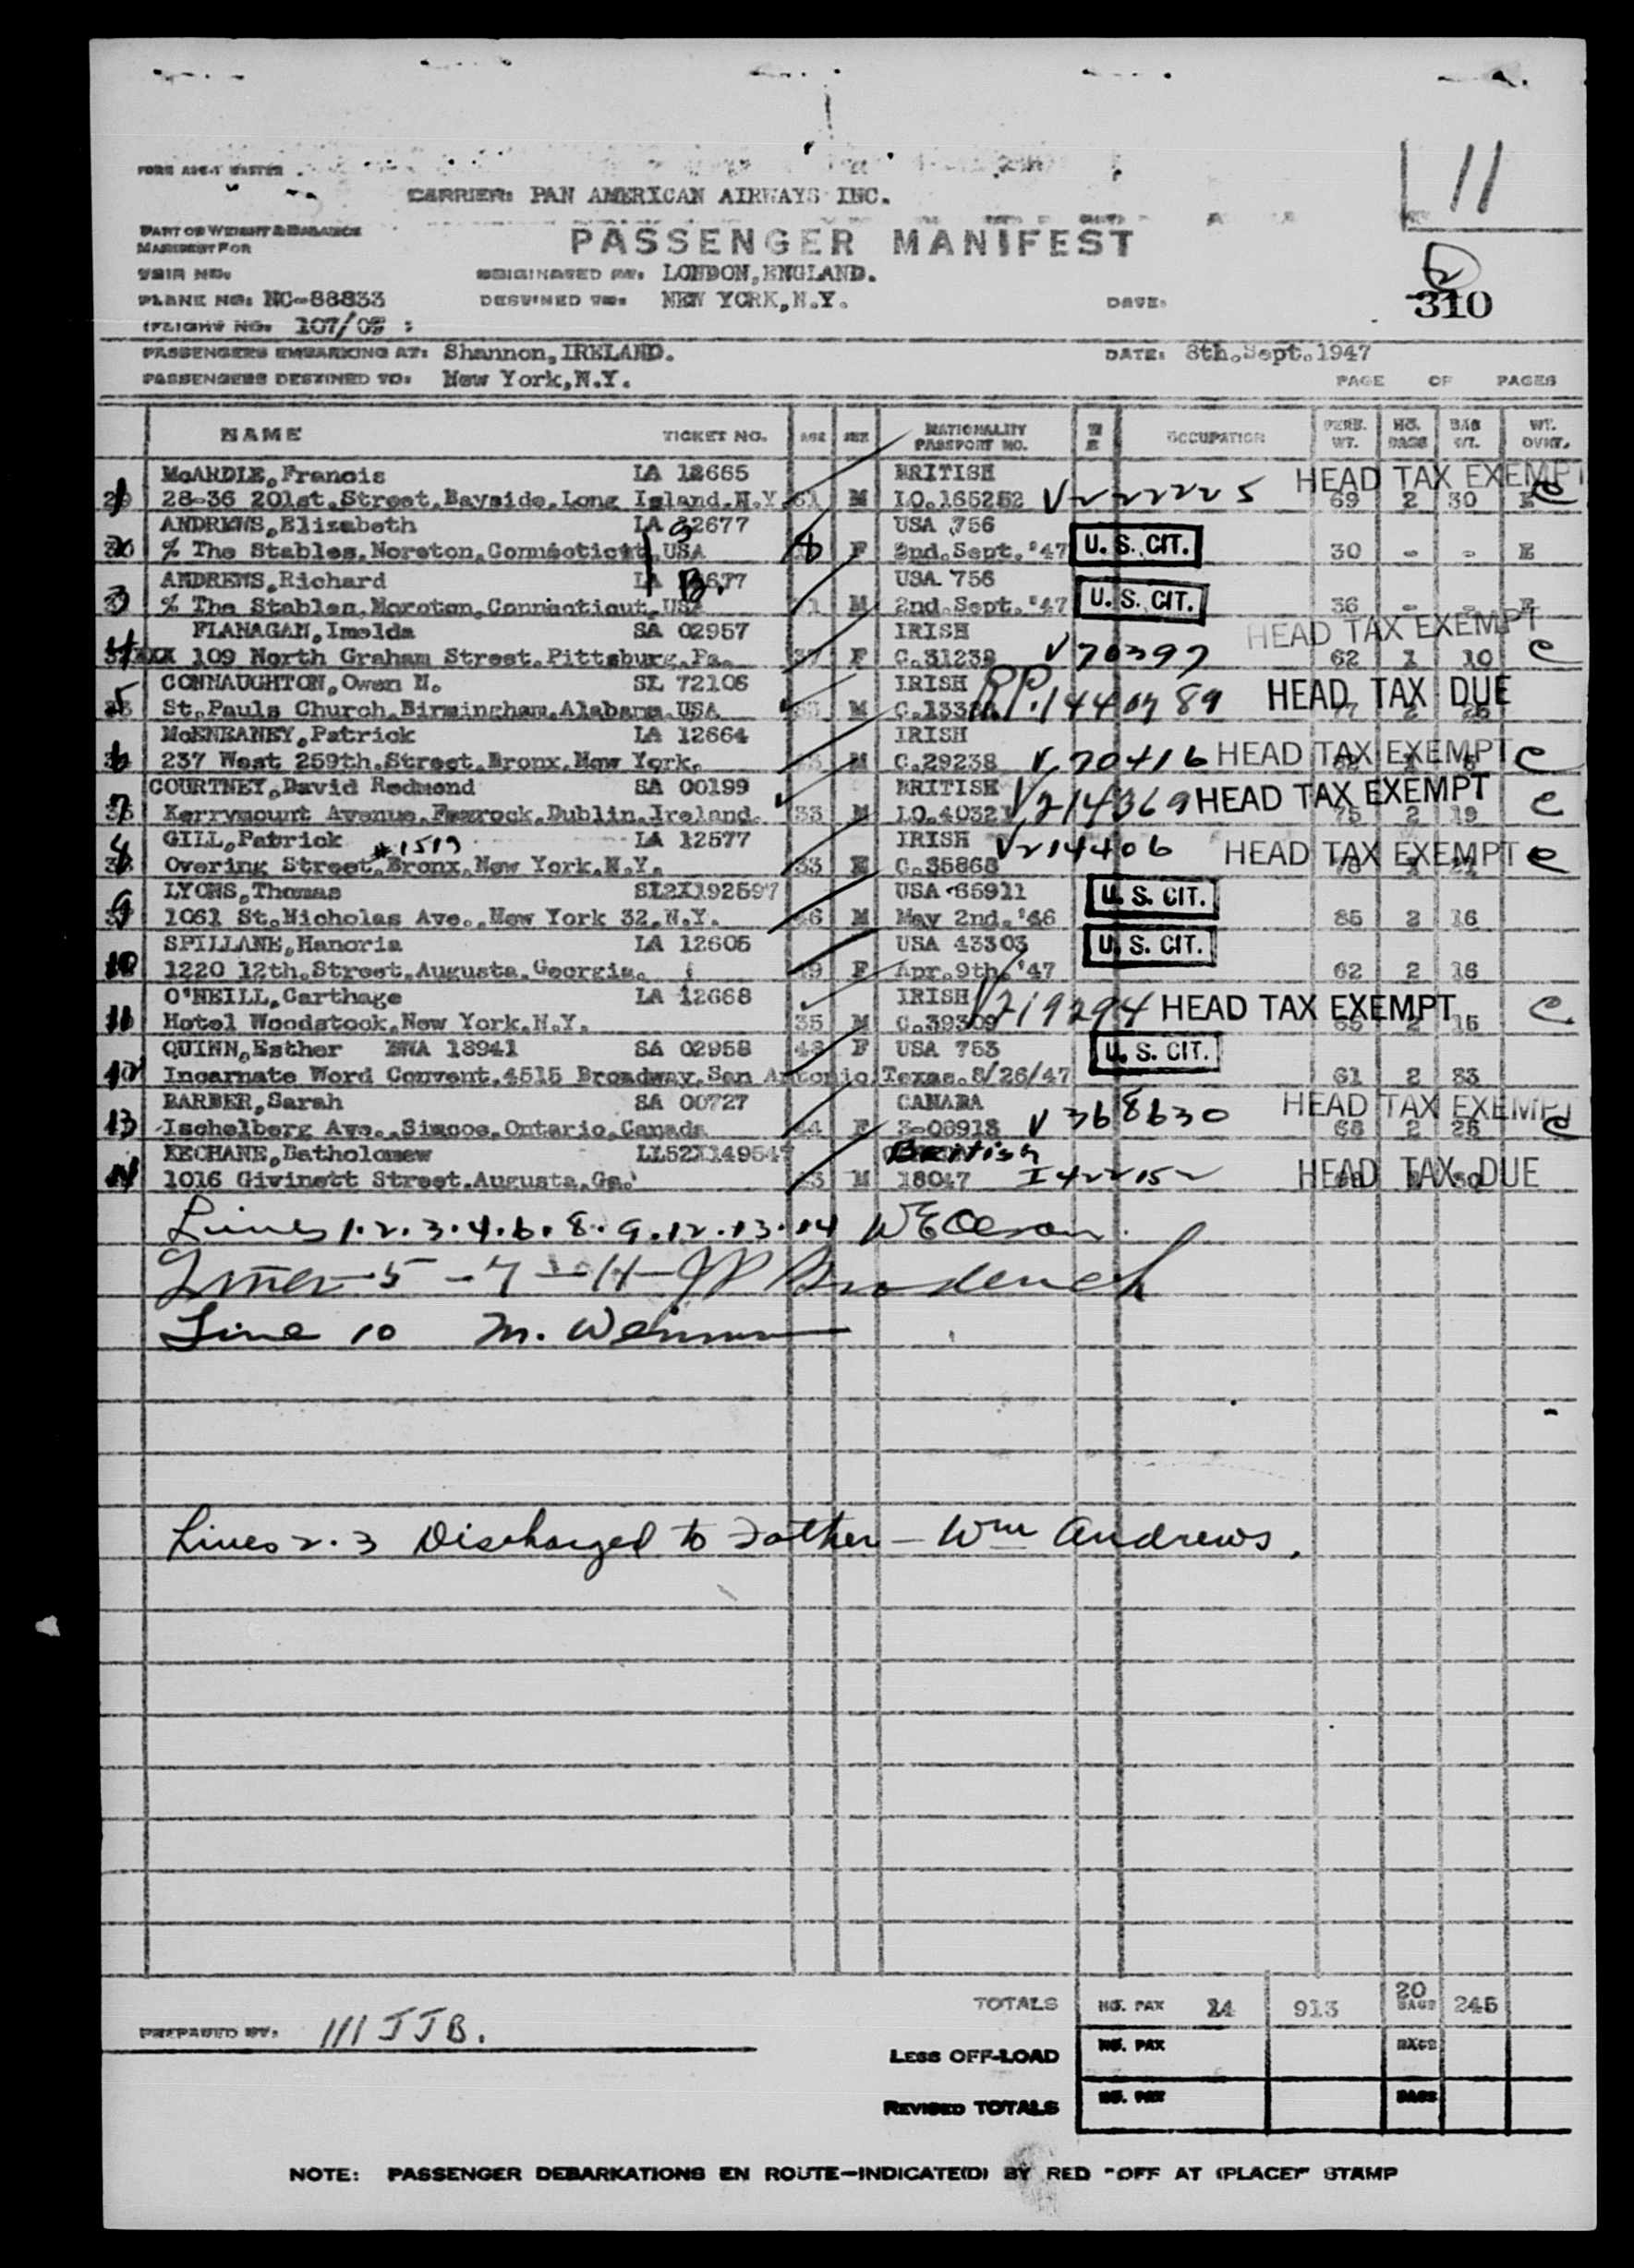 11
CARRIER: PAN AMERICAN AIRWAYS INC.
PART OF WEIGHT & BALANCE
MANIFEST FOR
PASSENGER MANIFEST
ORIGINATED AT: LONDON, ENGLAND.
PLANE NO: NC-88833 DESTINED TO: NEW YORK, N.Y. DATE:
310
(FLIGHT NO. 107/
PASSENGERS EMBARKING AT: Shannon, IRELAND. DATE: 8th. Sept. 1947
PASSENGERS DESTINED TO: New York, N.Y. PAGE OF PAGES
NAME TICKET NO. AGE SEX NATIONALITY PASSPORT NO. OCCUPATION PERS. WT. NO. BAGS BAG WT. WT. OVRT.
McARDLE, Francis LA 12665 BRITISH HEAD TAX EXEMPT
1 28-36 201st. Street, Bayside, Long Island, N.Y. M LO.165252 V222225 69 2 30 E
ANDREWS, Elizabeth LA 12677 USA 756
2 % The Stables, Noroton, Connecticut, USA F 2nd. Sept. '47 U. S. CIT. 30 - - E
ANDREWS, Richard LA USA 756
3 % The Stables, Noroton, Connecticut, USA M 2nd. Sept. '47 U. S. CIT. 36 - - E
FLANAGAN, Imelda SA 02957 IRISH HEAD TAX EXEMPT
4 109 North Graham Street, Pittsburg, Pa. F C.31238 V 70397 62 1 10 C
CONNAUGHTON, Owen N. SL 72106 IRISH
5 St. Pauls Church, Birmingham, Alabama, USA M RP.1440789 HEAD TAX DUE
McENEANEY, Patrick LA 12664 IRISH
6 237 West 259th. Street, Bronx, New York. M C.29238 V 70416 HEAD TAX EXEMPT C
COURTNEY, David Redmond SA 00199 BRITISH
7 Kerrymount Avenue, Foxrock, Dublin, Ireland. 33 M V214369 HEAD TAX EXEMPT 75 2 19 C
GILL, Patrick LA 12577 IRISH
#1519
8 Overing Street, Bronx, New York, N.Y. 33 C.35868 V214406 HEAD TAX EXEMPT C
LYONS, Thomas SL2X192597 USA 65911
9 1061 St. Nicholas Ave., New York 32, N.Y. M May 2nd. '46 U. S. CIT. 85 2 16
SPILLANE, Hanoria LA 12605 USA 43303
10 1220 12th. Street, Augusta, Georgia. F Apr. 9th. '47 U. S. CIT. 62 2 16
O'NEILL, Carthage LA 12668 IRISH
11 Hotel Woodstock, New York, N.Y. 35 M C.39309 V219294 HEAD TAX EXEMPT 65 2 15 C
QUINN, Esther 13941 SA 02958 F USA 753 U. S. CIT.
12 Incarnate Word Convent, 4515 Broadway, San Antonio, Texas. 8/26/47 61 2 33
BARBER, Sarah SA 00727 CANADA HEAD TAX EXEMPT
13 Ischelberg Ave., Simcoe, Ontario, Canada F 3-08918 V 368630 68 2 25 C
KEOHANE, Batholomew LL52X149547 British
14 1016 Givinett Street, Augusta, Ga. M 18047 I 422152 HEAD TAX DUE
Lines 1.2.3.4.6.8.9.12.13.14 W E Olson
Lines 5 - 7 - 11 - JP
Line 10 M.
Lines 2.3 Discharged to Father - Wm Andrews.
TOTALS NO. PAX 14 913 20 BAGS 245
PREPARED BY: 111 JJB.
LESS OFF-LOAD NO. PAX BAGS
REVISED TOTALS NO. PAX BAGS
NOTE: PASSENGER DEBARKATIONS EN ROUTE—INDICATE(D) BY RED "OFF AT (PLACE)" STAMP